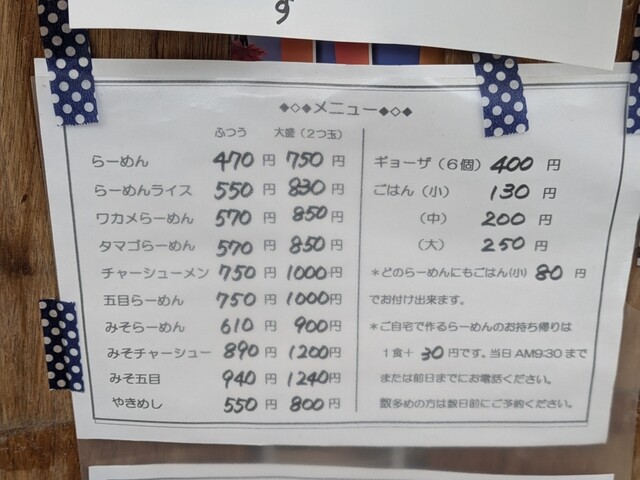 す
◆◇◆メニュー◆◇◆
ふつう 大盛(2つ玉)
らーめん 470円 750円
らーめんライス 550円 830円
ワカメらーめん 570円 850円
タマゴらーめん 570円 850円
チャーシューメン 750円 1000円
五目らーめん 750円 1000円
みそらーめん 610円 900円
みそチャーシュー 890円 1200円
みそ五目 940円 1240円
やきめし 550円 800円
ギョーザ(6個) 400円
ごはん(小) 130円
(中) 200円
(大) 250円
*どのらーめんにもごはん(小) 80円
でお付け出来ます。
*ご自宅で作るらーめんのお持ち帰りは
1食+30円です。当日AM9:30まで
または前日までにお電話ください。
数多めの方は数日前にご予約ください。